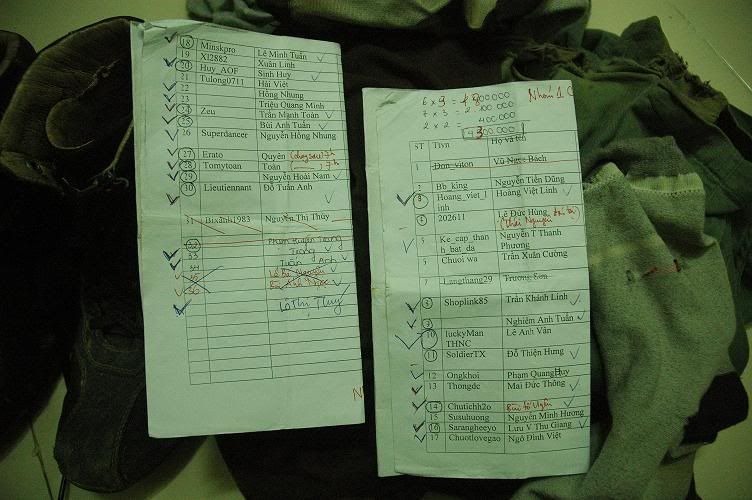 18 Minskpro Lê Minh Tuấn
19 Xl2882 Xuân Linh
20 Huy_AOF Sinh Huy
21 Tulong0711 Hải Việt
22 Hồng Nhung
23 Triệu Quang Minh
24 Zeu Trần Mạnh Toàn
25 Bùi Anh Tuấn
26 Superdancer Nguyễn Hồng Nhung
27 Erato Quyên
28 Tomytoan Toàn
29 Nguyễn Hoài Nam
30 Lieutiennant Đỗ Tuấn Anh
31 Bixanh1983 Nguyễn Thị Thúy
32 Phạm Huyền Trang
33 Trong
34 Tuấn Anh
35
36
Lò Thị Thuỷ
N
Nhóm 1
6 x 3 =
7 x 3 = 2 100 000
2 x 2 = 400 000
4 300 000
ST Ttvn Họ và tên
1 Don_viton Vũ Ngọc Bách
2 Bb_king Nguyễn Tiến Dũng
3 Hoang_viet_l
inh Hoàng Việt Linh
4 202611 Lê Đức Hùng
(Thái Nguyên
5 Ke_cap_tha
h_bat_da Nguyễn T Thanh
Phương
6 Chuoi wa Trần Xuân Cường
7 Langthang29 Trương Sơn
8 Shoplink85 Trần Khánh Linh
9 Nghiêm Anh Tuấn
10 luckyMan
THNC Lê Anh Văn
11 SoldierTX Đỗ Thiện Hưng
12 Ongkhoi Phạm Quang Huy
13 Thongdc Mai Đức Thông
14 Chutichh2o
15 Susuhuong Nguyễn Minh Hương
16 Sarangheeyo Lưu V Thu Giang
17 Chuotlovegao Ngô Đình Việt